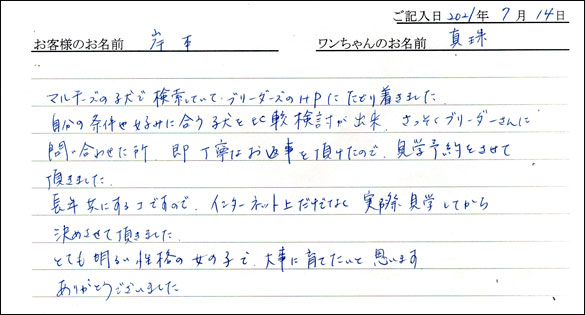 ご記入日 2021年 7月 14日
お客様のお名前 岸本 ワンちゃんのお名前 真珠
マルチーズの子犬で検索していて、ブリーダーズのHPにたどり着きました
自分の条件や好みに合う子犬を比較検討が出来、さっそくブリーダーさんに
問い合わせた所 即丁寧なお返事を頂けたので、見学予約をさせて
頂きました
長年共にするコですので、インターネット上だけでなく 実際見学してから
決めさせて頂きました
とても明るい性格の女の子で、大事に育てたいと思います
ありがとうございました